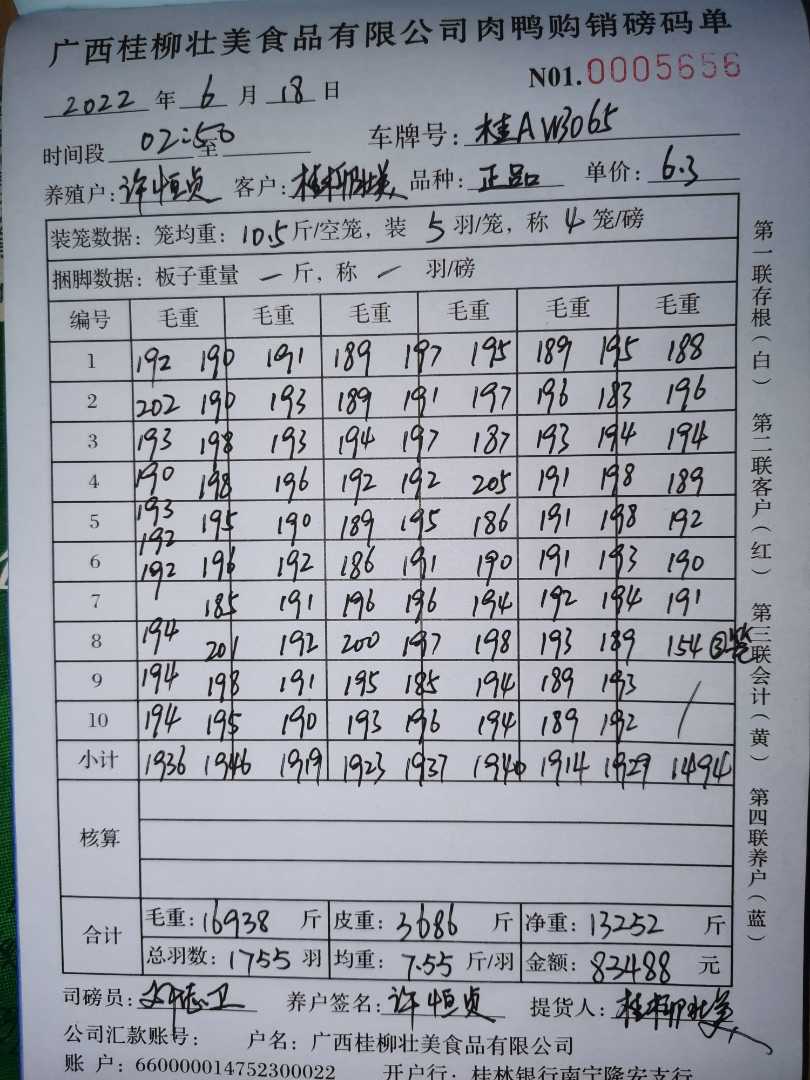 广西桂柳壮美食品有限公司肉鸭购销磅码单
N01.0005656
2022 年 6 月 18 日
时间段 02:50 至
车牌号: 桂AW3065
养殖户: 许恒贞 客户: 桂柳壮美 品种: 正品 单价: 6.3
装笼数据: 笼均重: 10.5 斤/空笼, 装 5 羽/笼, 称 4 笼/磅
捆脚数据: 板子重量 一 斤, 称 一 羽/磅
编号 毛重 毛重 毛重 毛重 毛重 毛重
1 192 190 191 189 197 195 189 195 188
2 202 190 193 189 191 197 196 183 196
3 193 198 193 194 197 187 193 194 194
4 190 198 196 192 192 205 191 198 189
5 193 192 195 190 189 195 186 191 198 192
6 192 196 192 186 191 190 191 193 190
7 185 191 196 196 194 192 194 191
8 194 201 192 200 197 198 193 189 154 ③笼
9 194 198 191 195 185 194 189 193 /
10 194 195 190 193 196 194 189 192
小计 1936 1946 1919 1923 1937 1940 1914 1929 1494
核算
合计 毛重: 16938 斤 皮重: 3686 斤 净重: 13252 斤
总羽数: 1755 羽 均重: 7.55 斤/羽 金额: 83488 元
司磅员: 养户签名: 许恒贞 提货人: 桂柳壮美
公司汇款账号: 户名: 广西桂柳壮美食品有限公司
账 户: 660000014752300022 开户行: 桂林银行南宁隆安支行
第一联存根(白) 第二联客户(红) 第三联会计(黄) 第四联养户(蓝)